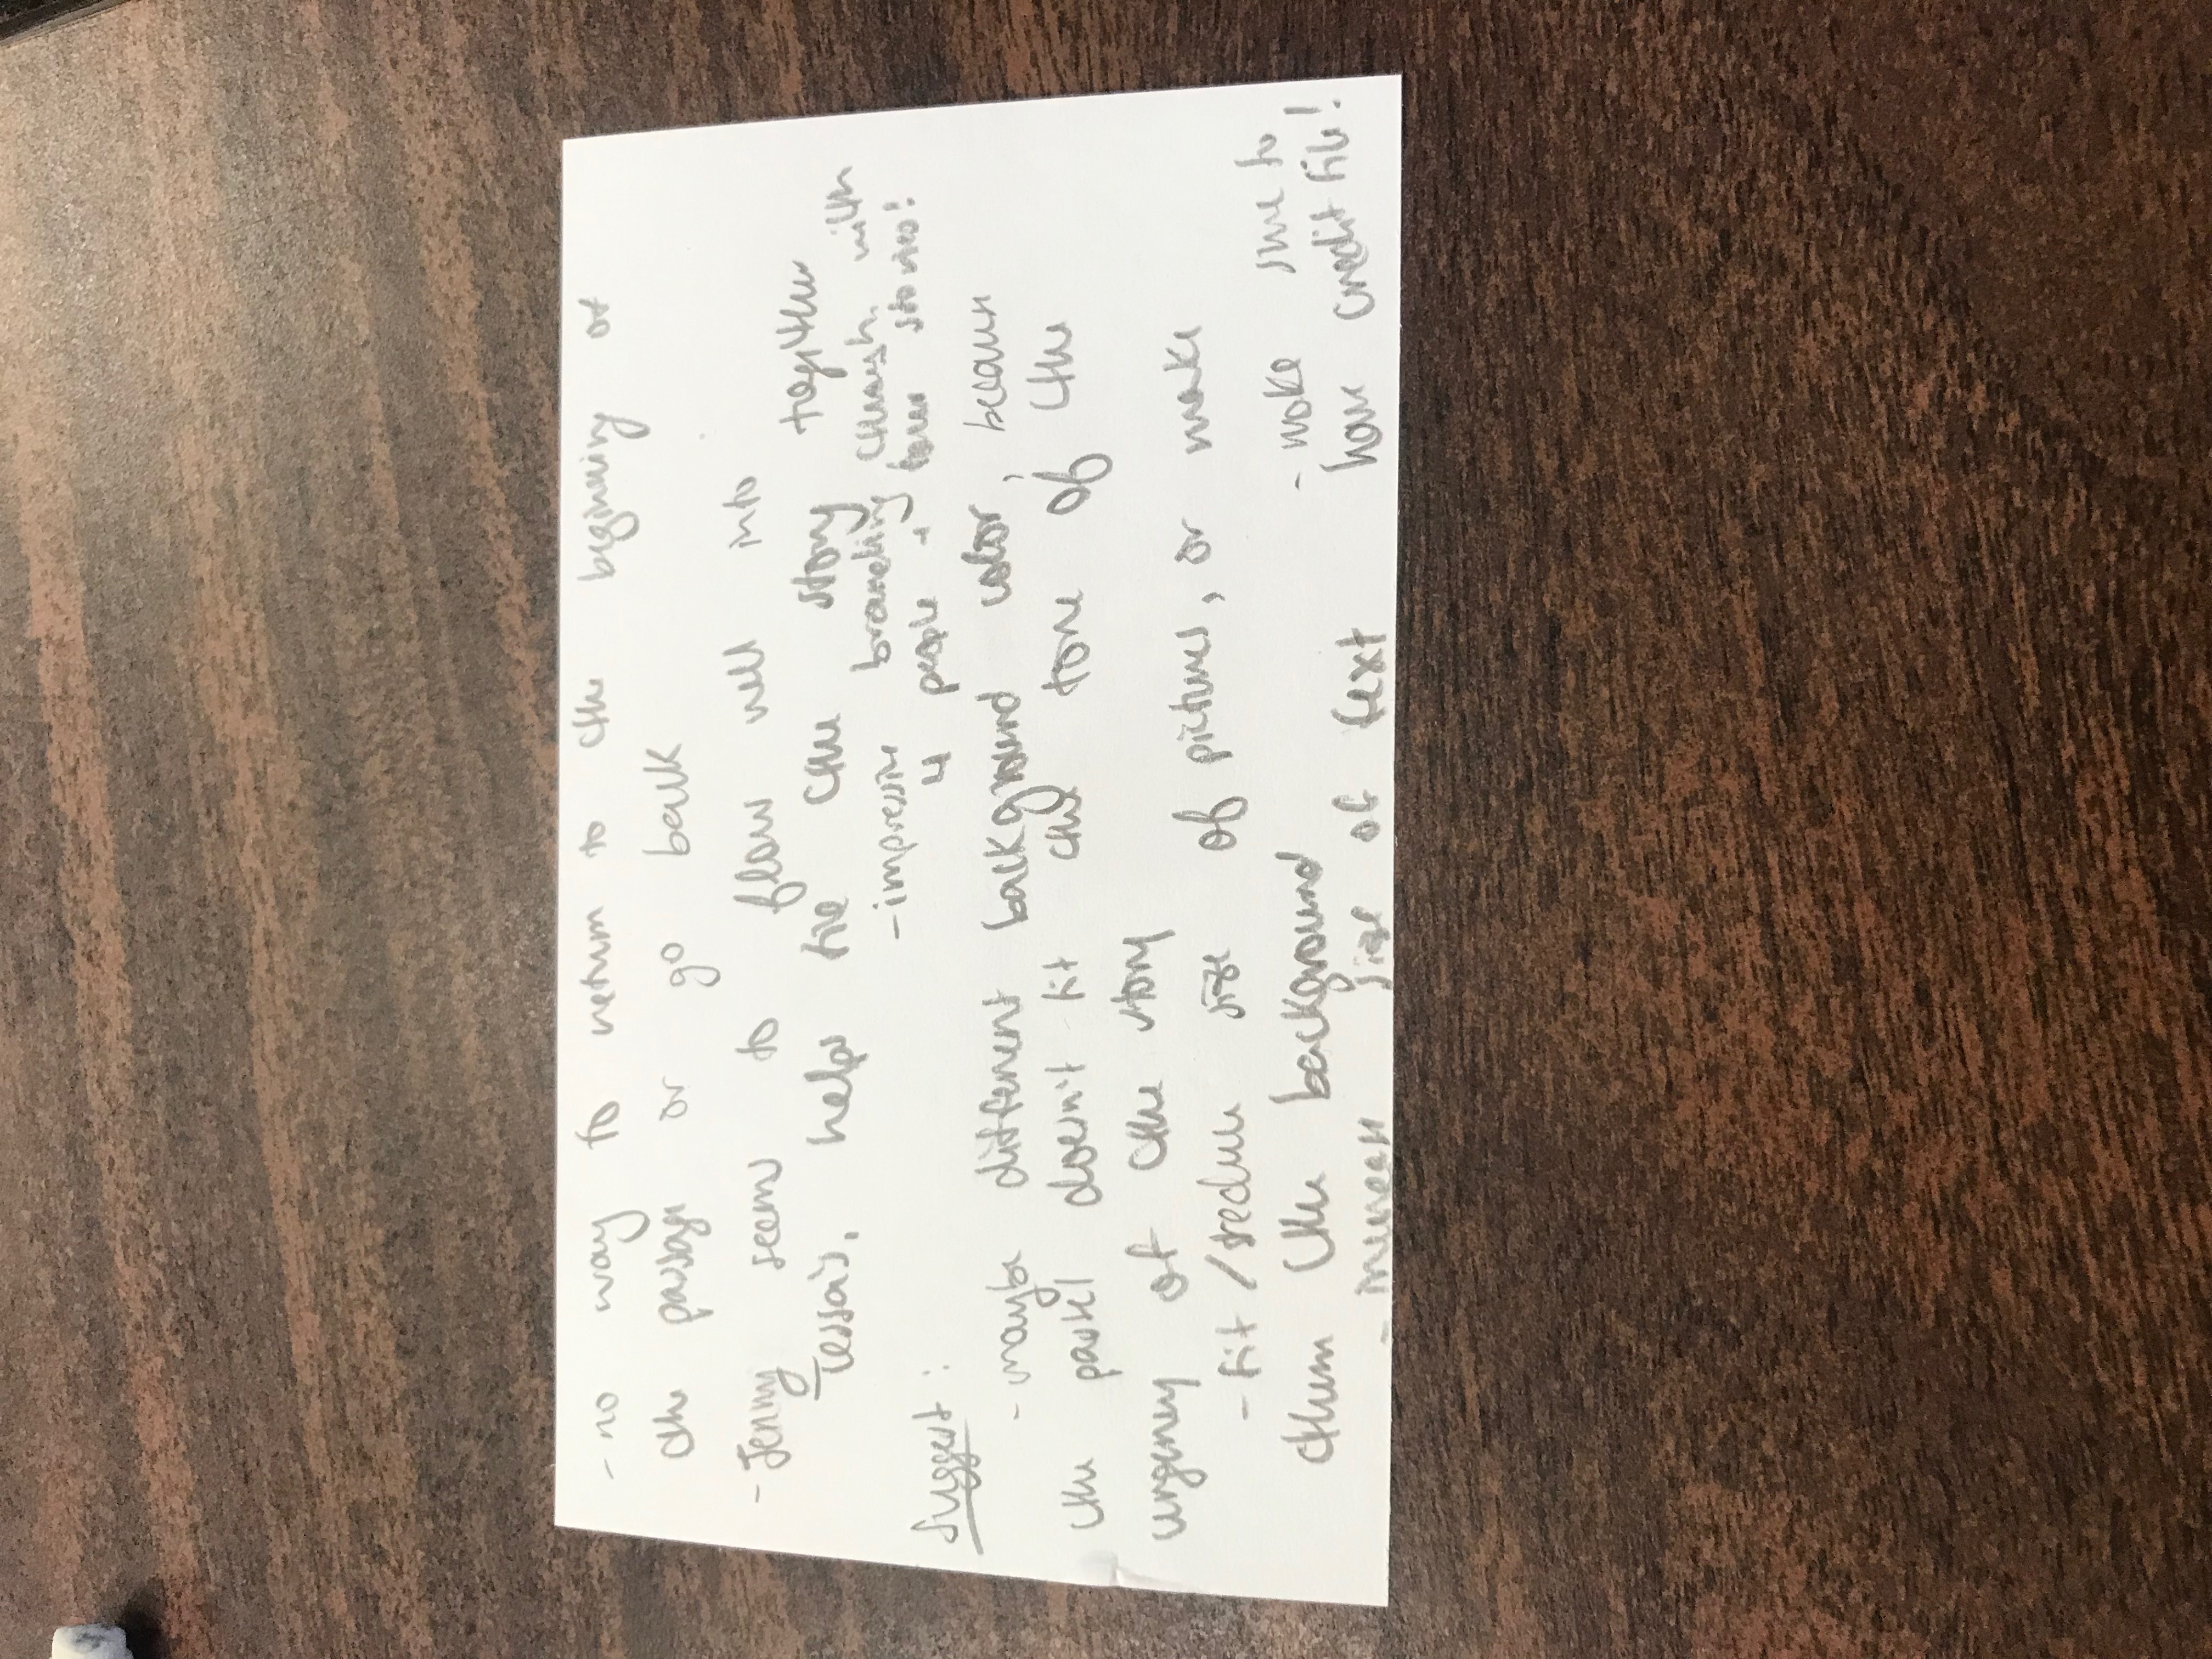 - no way to return to the beginning of
the passage or go back
- Jenny seems to flow well into
Tessa's, helps tie the story together
- impressive branching though, with
4 people + their stories!
Suggest:
- maybe different background color, because
the pastel doesn't fit the tone of the
urgency of the story
- fit/reduce size of pictures, or make
them the background
- make sure to
have credit file!
- increase size of text